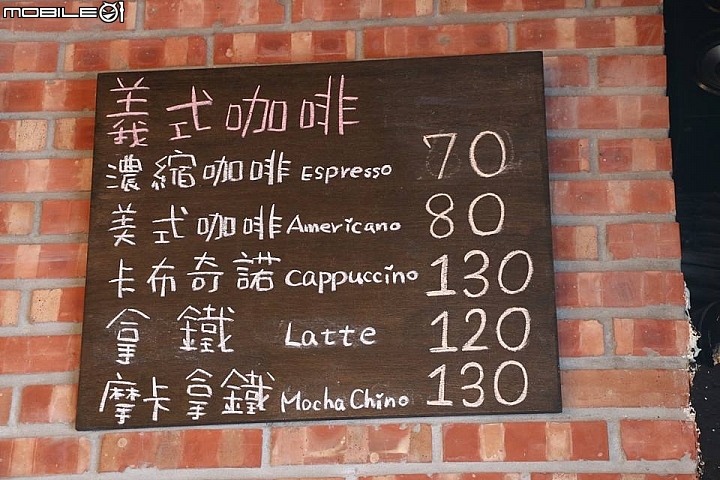 MOBILE01
義式咖啡
濃縮咖啡 Espresso 70
美式咖啡 Americano 80
卡布奇諾 Cappuccino 130
拿鐵 Latte 120
摩卡拿鐵 MochaChino 130